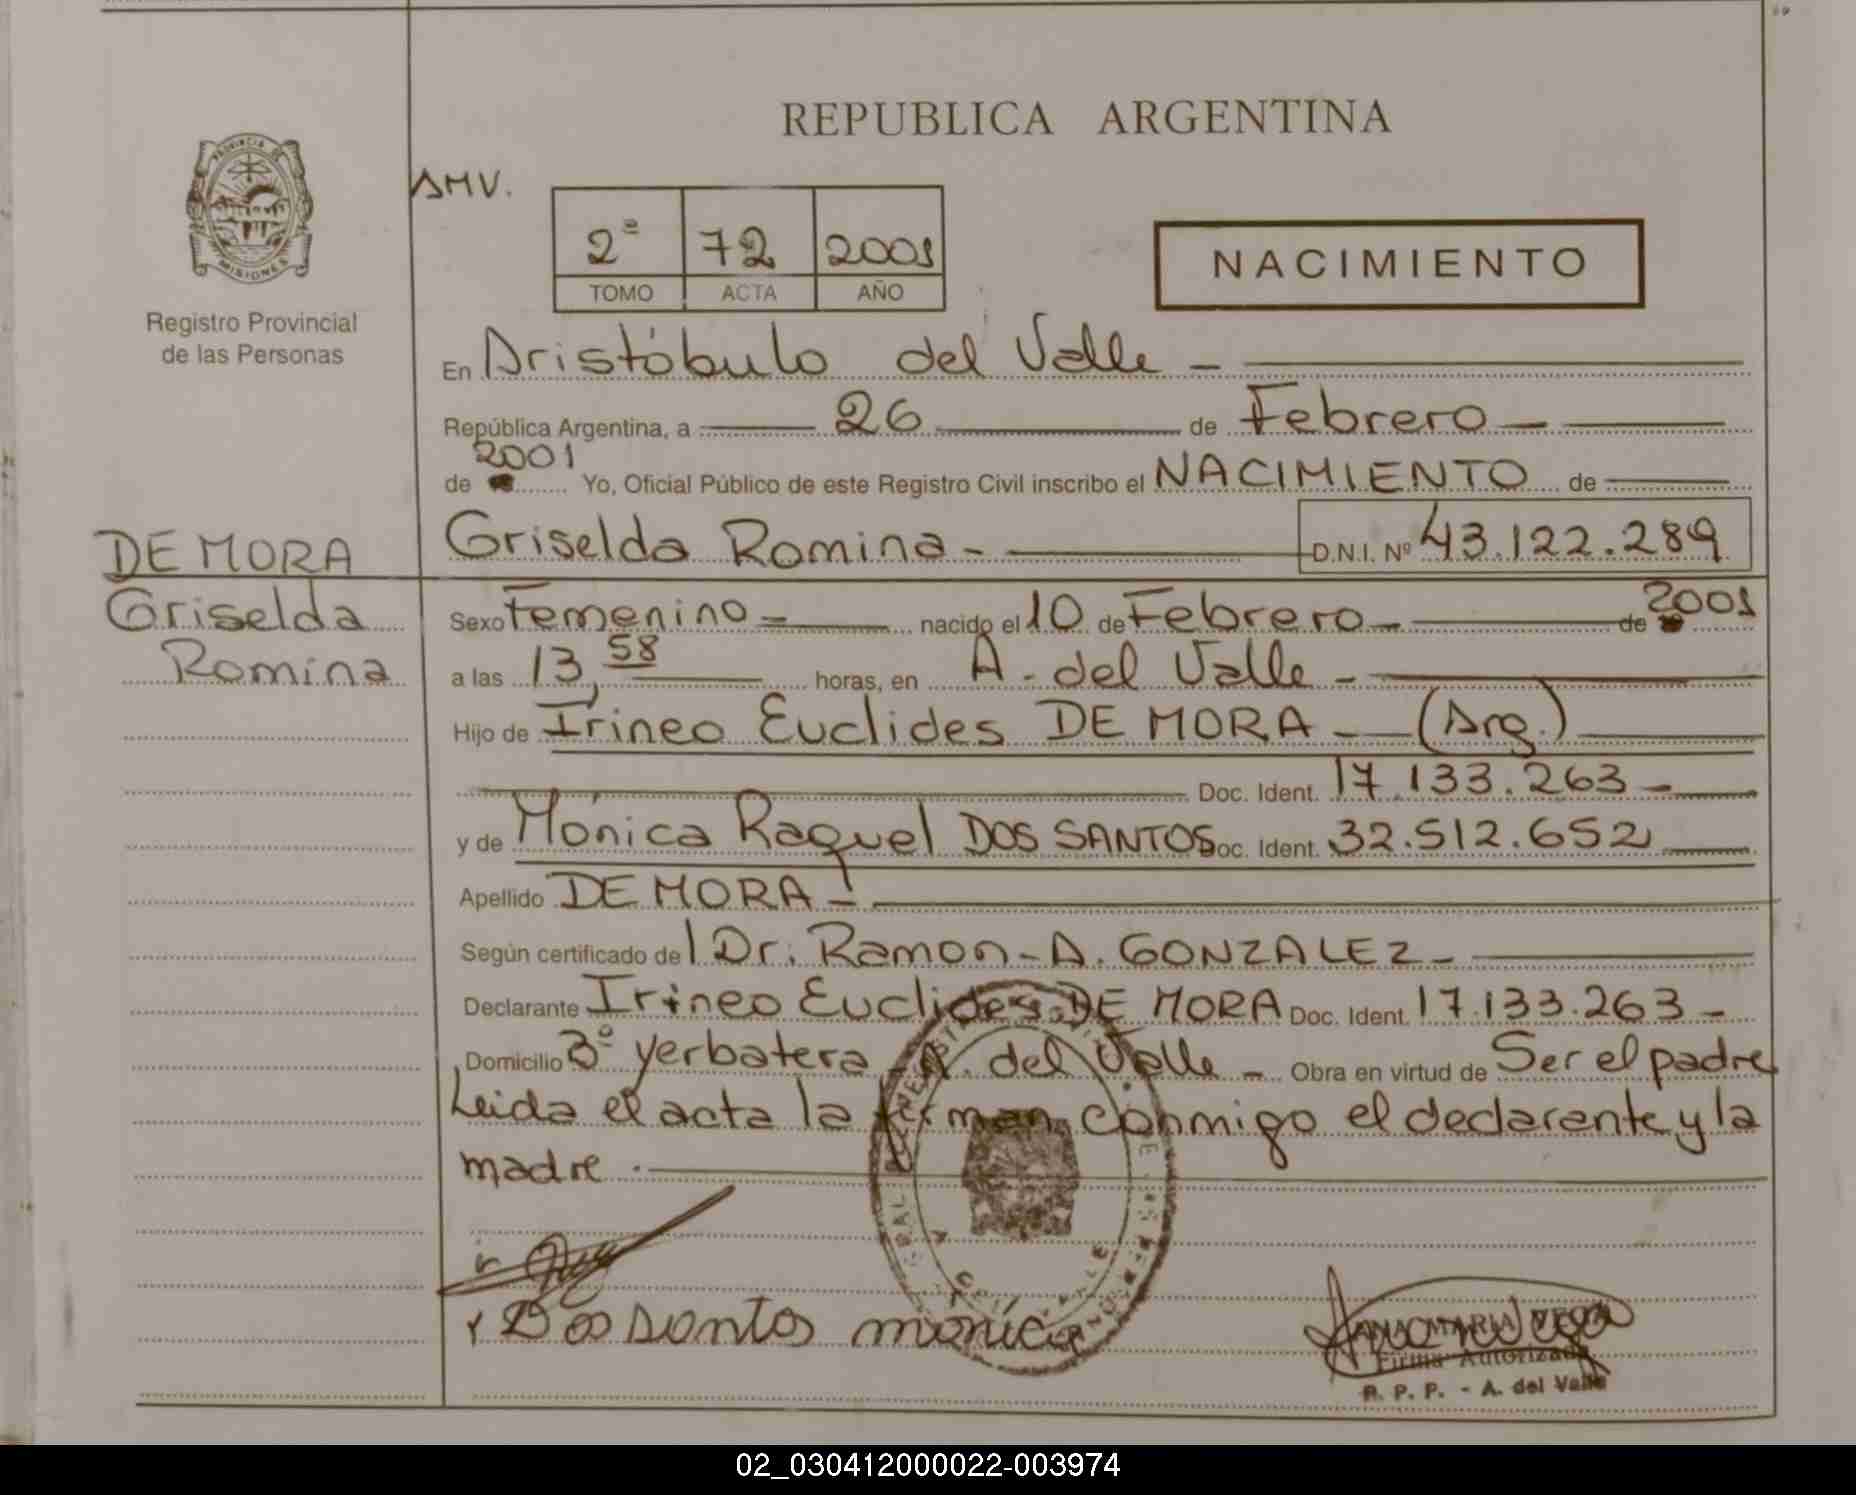 REPUBLICA ARGENTINA
PROVINCIA DE
MISIONES
Registro Provincial
de las Personas
AMV.
2ª 72 2001
TOMO ACTA AÑO
NACIMIENTO
En Aristóbulo del Valle -
República Argentina, a 26 de Febrero
de 2001 Yo, Oficial Público de este Registro Civil inscribo el NACIMIENTO de
Griselda Romina - D.N.I. Nº 43.122.289
DE MORA
Griselda
Romina
Sexo Femenino nacido el 10 de Febrero de 2001
a las 13,58 horas, en A. del Valle -
Hijo de Irineo Euclides DE MORA (Arg.)
Doc. Ident. 17.133.263 -
y de Mónica Raquel DOS SANTOS Doc. Ident. 32.512.652
Apellido DE MORA -
Según certificado del Dr. Ramon A. GONZALEZ -
Declarante Irineo Euclides DE MORA Doc. Ident. 17.133.263 -
Domicilio 3º yerbatera A. del Valle - Obra en virtud de Ser el padre
Leida el acta la firman conmigo el declarante y la
madre.
Dos santos mónica
ANA MARIA VEGA
Firma Autorizada
R. P. P. - A. del Valle
02_030412000022-003974